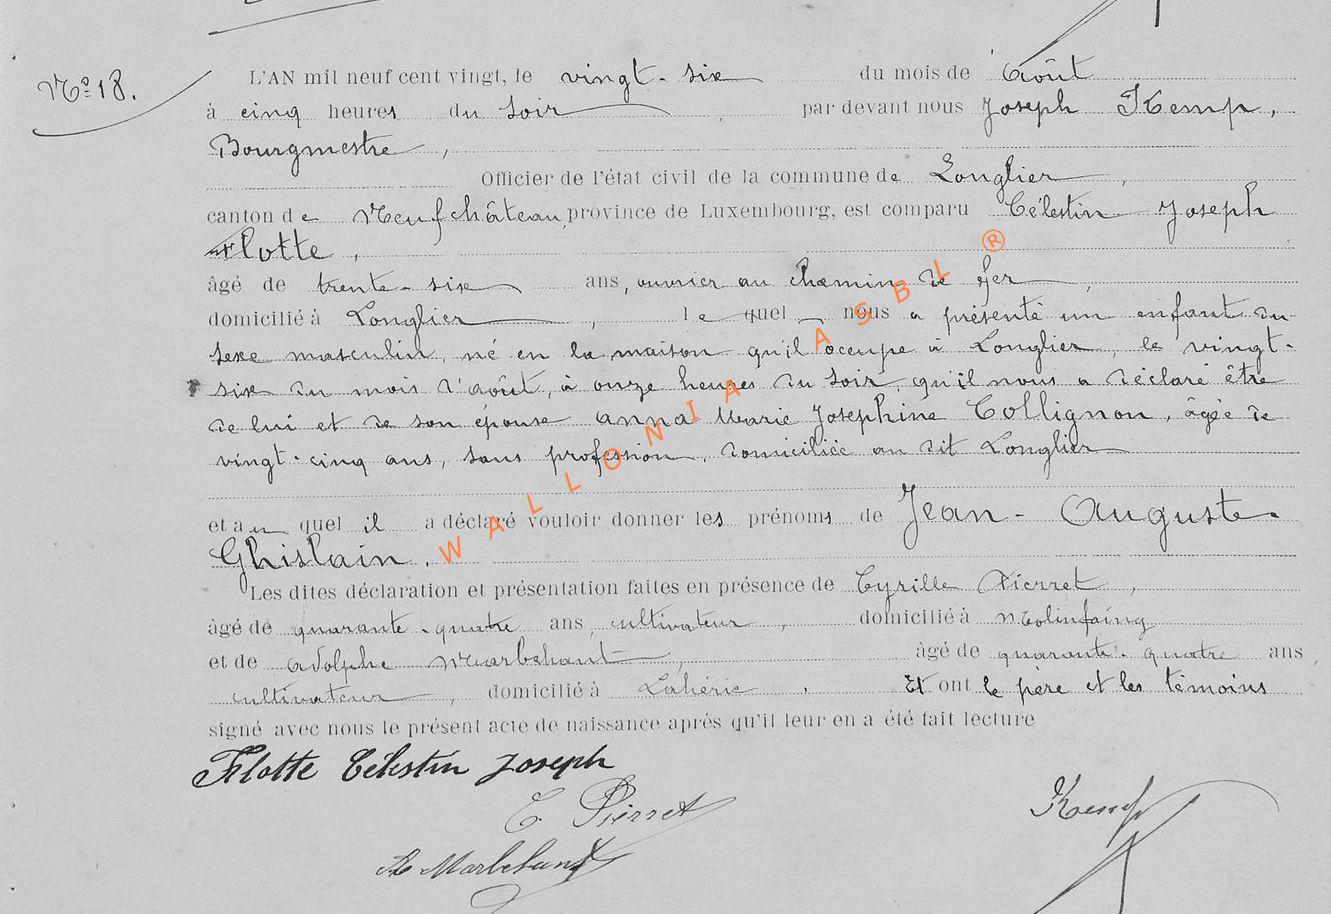 No 18.
L'AN mil neuf cent vingt, le vingt-six du mois de Août
à cinq heures du soir par devant nous Joseph Kemp,
Bourgmestre,
Officier de l'état civil de la commune de Longlier,
canton de Neufchâteau, province de Luxembourg, est comparu Célestin Joseph
Flotte,
âgé de trente-six ans, ouvrier au chemin de fer,
domicilié à Longlier, lequel nous a présenté un enfant du
sexe masculin, né en la maison qu'il occupe à Longlier, le vingt-
six du mois d'août, à onze heures du soir, qu'il nous a déclaré être
de lui et de son épouse Anna Marie Joséphine Collignon, âgée de
vingt-cinq ans, sans profession, domiciliée au dit Longlier
et auquel il a déclaré vouloir donner les prénoms de Jean-Auguste-
Ghislain.
Les dites déclaration et présentation faites en présence de Cyrille Pierret,
âgé de quarante-quatre ans, cultivateur, domicilié à Molinfaing
et de Adolphe Marbehant, âgé de quarante-quatre ans,
cultivateur, domicilié à Lahérie. Et ont le père et les témoins
signé avec nous le présent acte de naissance après qu'il leur en a été fait lecture
Flotte Célestin Joseph
C. Pierret
Kemp
A Marbehant
WALLONIA ASBL ®